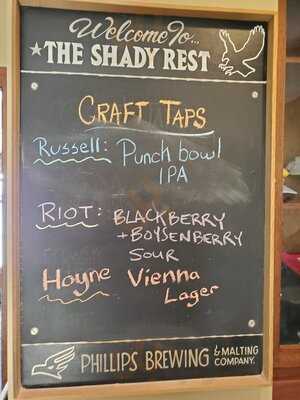 Welcome To...
★THE SHADY REST
CRAFT TAPS
Russell: Punch bowl
IPA
RIOT: BLACKBERRY
+ BOYSENBERRY
SOUR
Hoyne Vienna
Lager
PHILLIPS BREWING & MALTING
COMPANY.